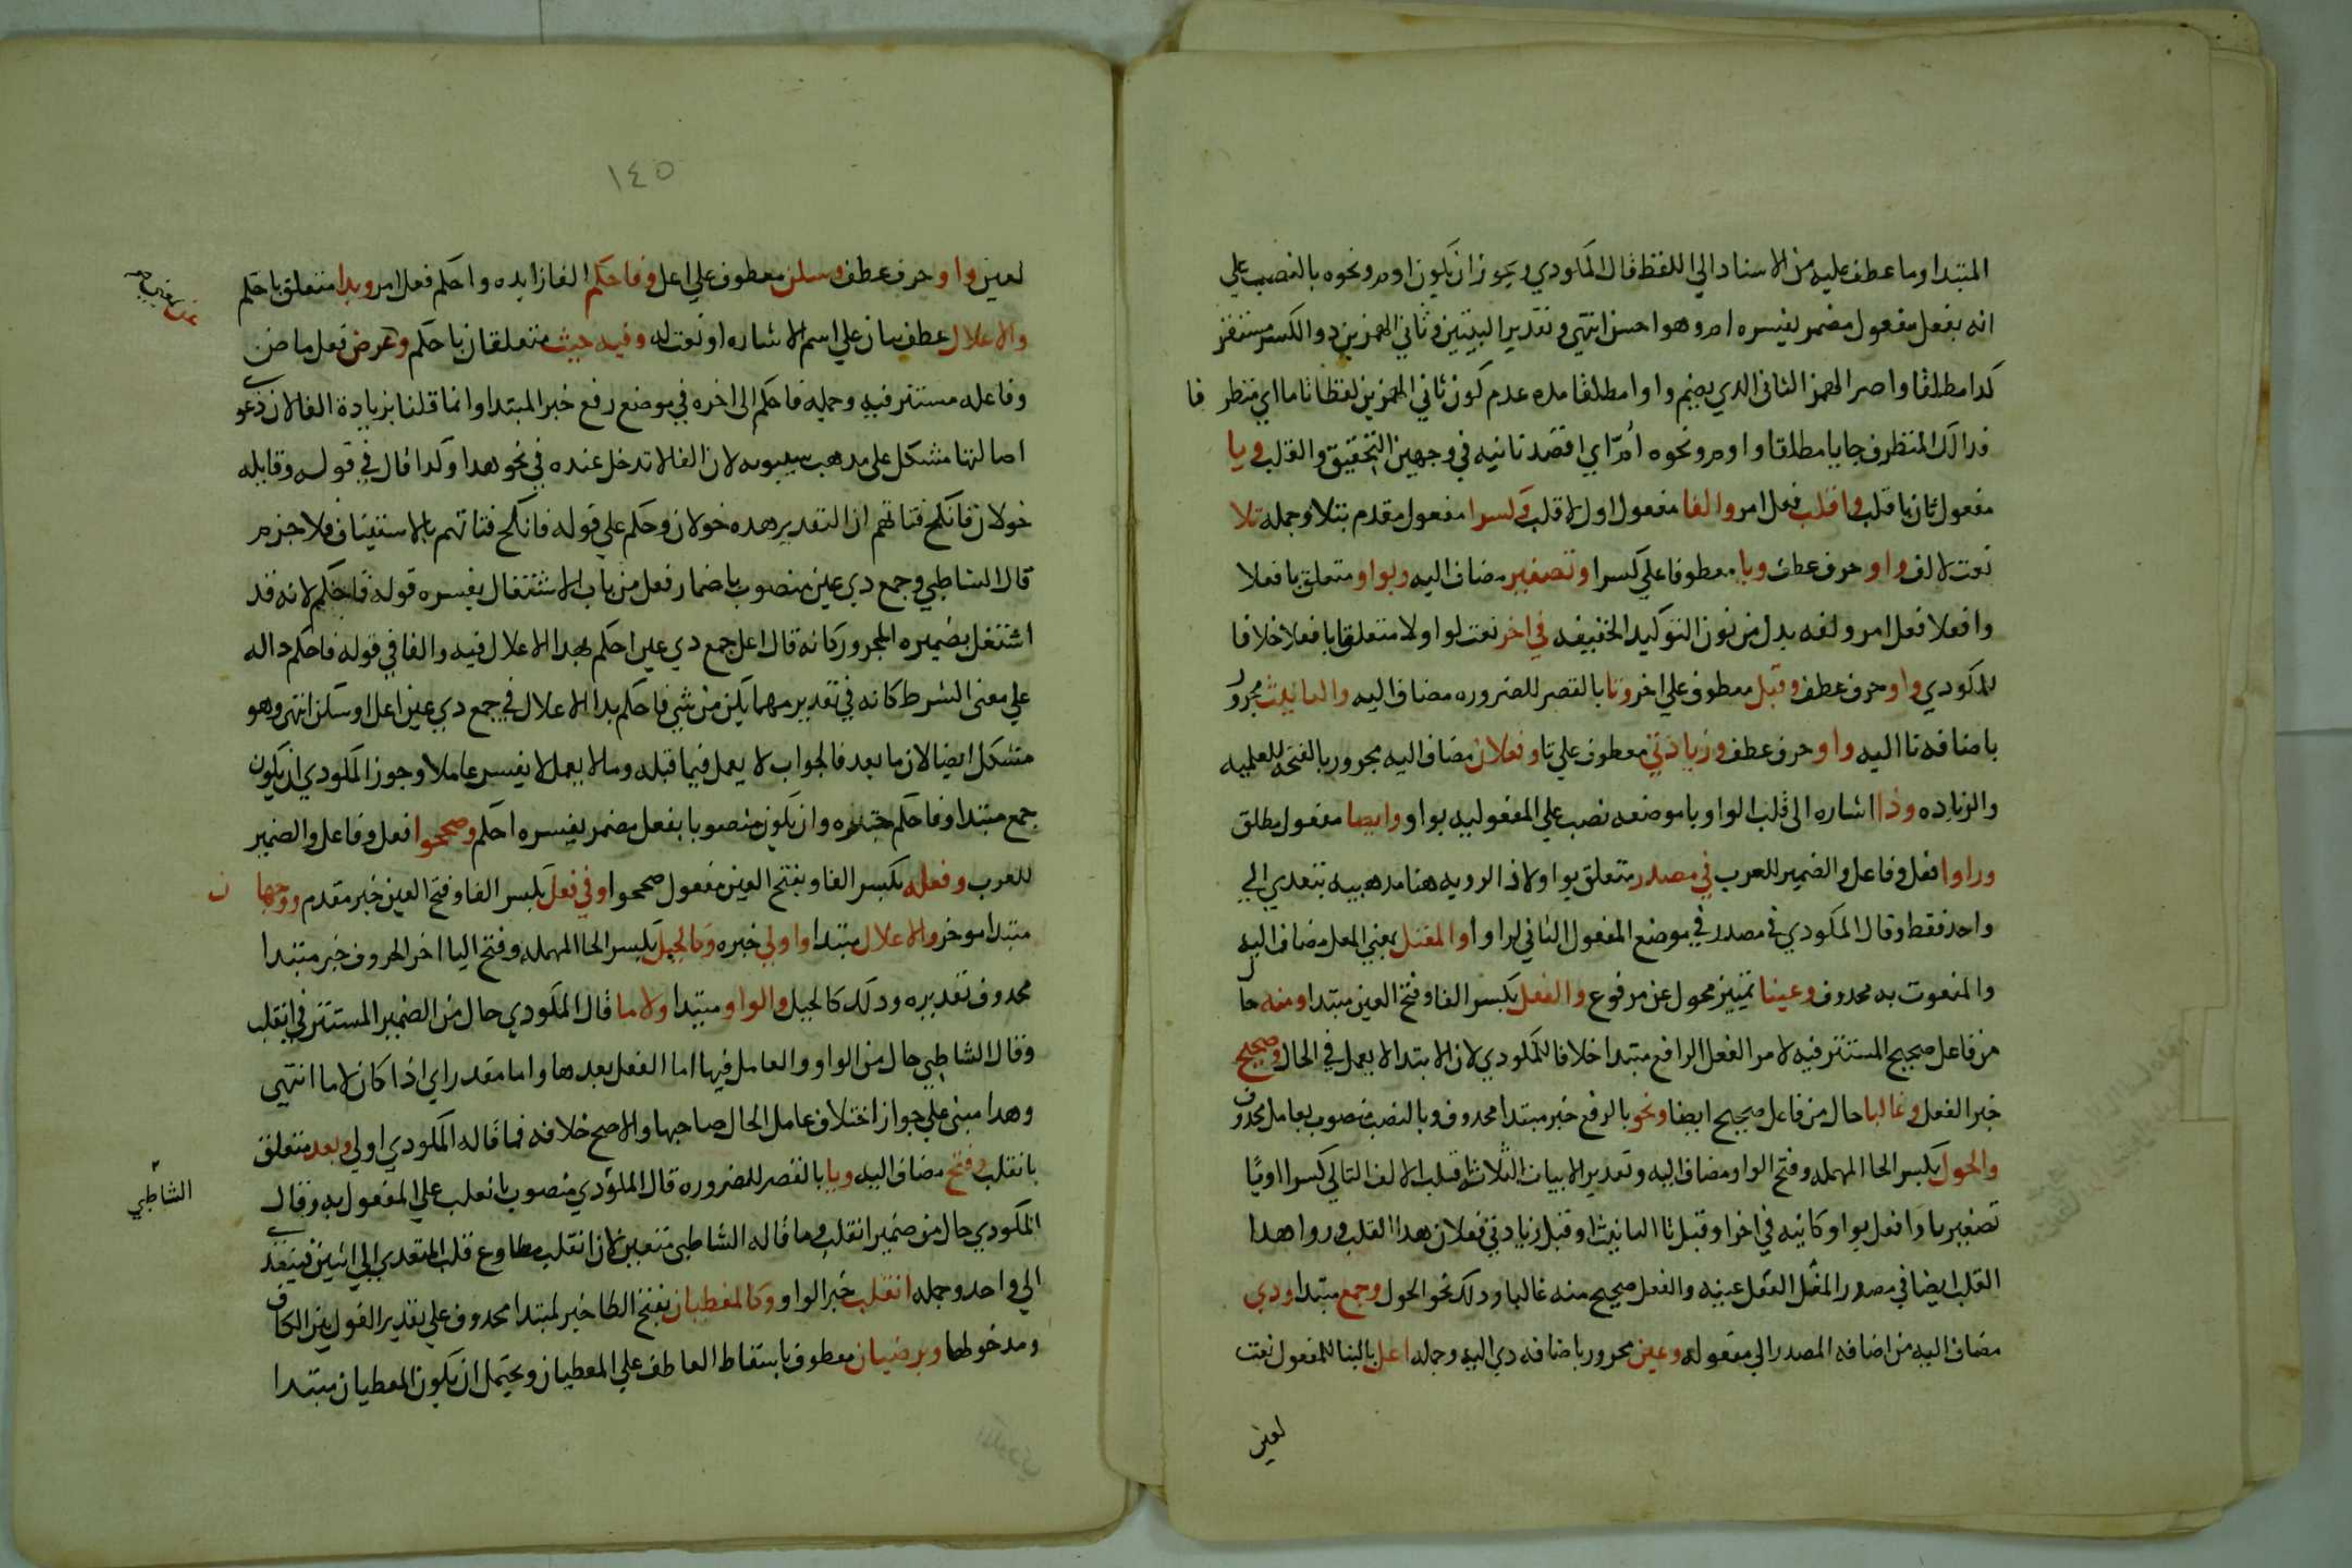 المبتدا وما عطف عليه من الاسناد الي اللفظ قال المكودي ويجوز ان يكون اوم ونحوه بالنصب علي
انه بفعل مفعول مضمر يفسره ام وهو احسن انتهي وتقدير البيتين وثاني الهمزين ذو الكسر مستقر
كدا مطلقا واصر الهمز الثاني الدي يضم واوا مطلقا مده عدم كون ثاني الهمزين لفظا تاما اي متطرفا
فداك المتطرف جا يا مطلقا واوم ونحوه اؤم اي اقصد ثانيه في وجهين التحقيق والقلب ويا
مفعول ثان باقلب واقلب فعل امر والفا مفعول اول لاقلب وكسرا مفعول مقدم بتلا وجمله تلا
نعت لالف واو حرف عطف ويا معطوف علي كسرا وتصغير مضاف اليه وبواو متعلق بافعلا
وافعلا فعل امر والفه بدل من نون التوكيد الخفيفه في اخر نعت لواو لا متعلقا بافعلا خلافا
للمكودي واو حرف عطف وقبل معطوف علي اخر وتا بالقصر للضروره مضاف اليه والتانيث مجرور
باضافه تا اليه واو حرف عطف وزيادتي معطوف علي تا وفعلان مضاف اليه مجرور بالفتحه للعلميه
والزياده وذا اشاره الي قلب الواو يا موضعه نصب علي المفعوليه بواو وايضا مفعول مطلق
وراوا فعل وفاعل والضمير للعرب في مصدر متعلق بواو لان الرويه هنا مدهبيه تتعدي الي
واحد فقط وقال المكودي في مصدر في موضع المفعول الثاني لراوا والمعتل بمعني المعل مضاف اليه
والمنعوت به محدوف وعينا تمييز محول عن مرفوع والفعل بكسر الفا وفتح العين مبتدا ومنه حال
من فاعل صحيح المستتر فيه لا من الفعل الرافع مبتدا خلافا للمكودي لان الابتدا لا يعمل في الحال وصحيح
خبر الفعل وغالبا حال من فاعل صحيح ايضا ونحو بالرفع خبر مبتدا محدوف وبالنصب منصوب بعامل محدوف
والحول بكسر الحا المهمله وفتح الواو مضاف اليه وتقدير الابيات الثلاثة قلب الالف التالي كسرا او يا
تصغير يا وافعل بواو كائنه في اخر او قبل تا التانيث او قبل زيادتي فعلان هدا القلب وراوا هدا
القلب ايضا في مصدر المعتل الفعل عينه والفعل صحيح منه غالبا ودلك نحو الحول وجمع مبتدا ودي
مضاف اليه من اضافه المصدر الي مفعوله وعين مجرور باضافه دي اليه وجمله اعل بالبنا للمفعول نعت
لعين
١٤٥
لعين واو حرف عطف وسكن معطوف علي اعل وفاحكم الفا زايده واحكم فعل امر وبدا متعلق باحكم
والاعلال عطف بيان علي اسم الاشاره او نعت له وفيه حيث متعلقان باحكم وعرض فعل ماض
وفاعله مستتر فيه وجمله فاحكم الي اخره في موضع رفع خبر المبتدا وانما قلنا بزيادة الفا لان دعوي
اصالتها مشكل علي مدهب سيبويه لان الفا لا تدخل عنده في نحو هدا وكدا قال في قوله وقايله
خولان فانكح فتاتهم ان التقدير هده خولان وحكم علي قوله فانكح فتاتهم بالاستيناف فلا جزم
قال الشاطبي وجمع دي عين منصوب باضمار فعل من باب الاشتغال يفسره قوله فاحكم لانه قد
اشتغل بضميره المجرور كانه قال اعل جمع دي عين احكم بهدا الاعلال فيه والفا في قوله فاحكم داله
علي معني الشرط كانه في تقدير مهما يكن من شي فاحكم بدا الاعلال في جمع دي عين اعل او سكن انتهي وهو
مشكل ايضا لان ما بعد فا الجواب لا يعمل فيما قبله وما لا يعمل لا يفسر عاملا وجوز المكودي ان يكون
جمع مبتدا وفاحكم خبره وان يكون منصوبا بفعل مضمر يفسره احكم وصححوا فعل وفاعل والضمير
للعرب وفعله بكسر الفا وبفتح العين مفعول صححوا وفي فعل بكسر الفا وفتح العين خبر مقدم ووجهان
مبتدا موخر والاعلال مبتدا واولي خبره وكالحيل بكسر الحا المهمله وفتح اليا اخر الحروف خبر مبتدا
محدوف تقديره ودلك كالحيل والواو مبتدا ولاما قال المكودي حال من الضمير المستتر في انقلب
وقال الشاطبي حال من الواو والعامل فيها اما الفعل بعدها واما مقدر اي اذا كان لاما انتهي
وهدا مبني علي جواز اختلاف عامل الحال صاحبها والاصح خلافه فما قاله المكودي اولي وبعد متعلق
بانقلب وفتح مضاف اليه ويا بالقصر للضروره قال المكودي منصوب بانقلب علي المفعول به وقال
الشاطبي
المكودي حال من ضمير انقلب وما قاله الشاطبي متعين لان انقلب مطاوع قلب المتعدي الي اثنين فيتعدي
الي واحد وجمله انقلب خبر الواو وكالمعطيان بفتح الطا خبر لمبتدا محدوف علي تقدير القول بين الكاف
ومدخولها ويرضيان معطوف باسقاط العاطف علي المعطيان ويحتمل ان يكون المعطيان مبتدا